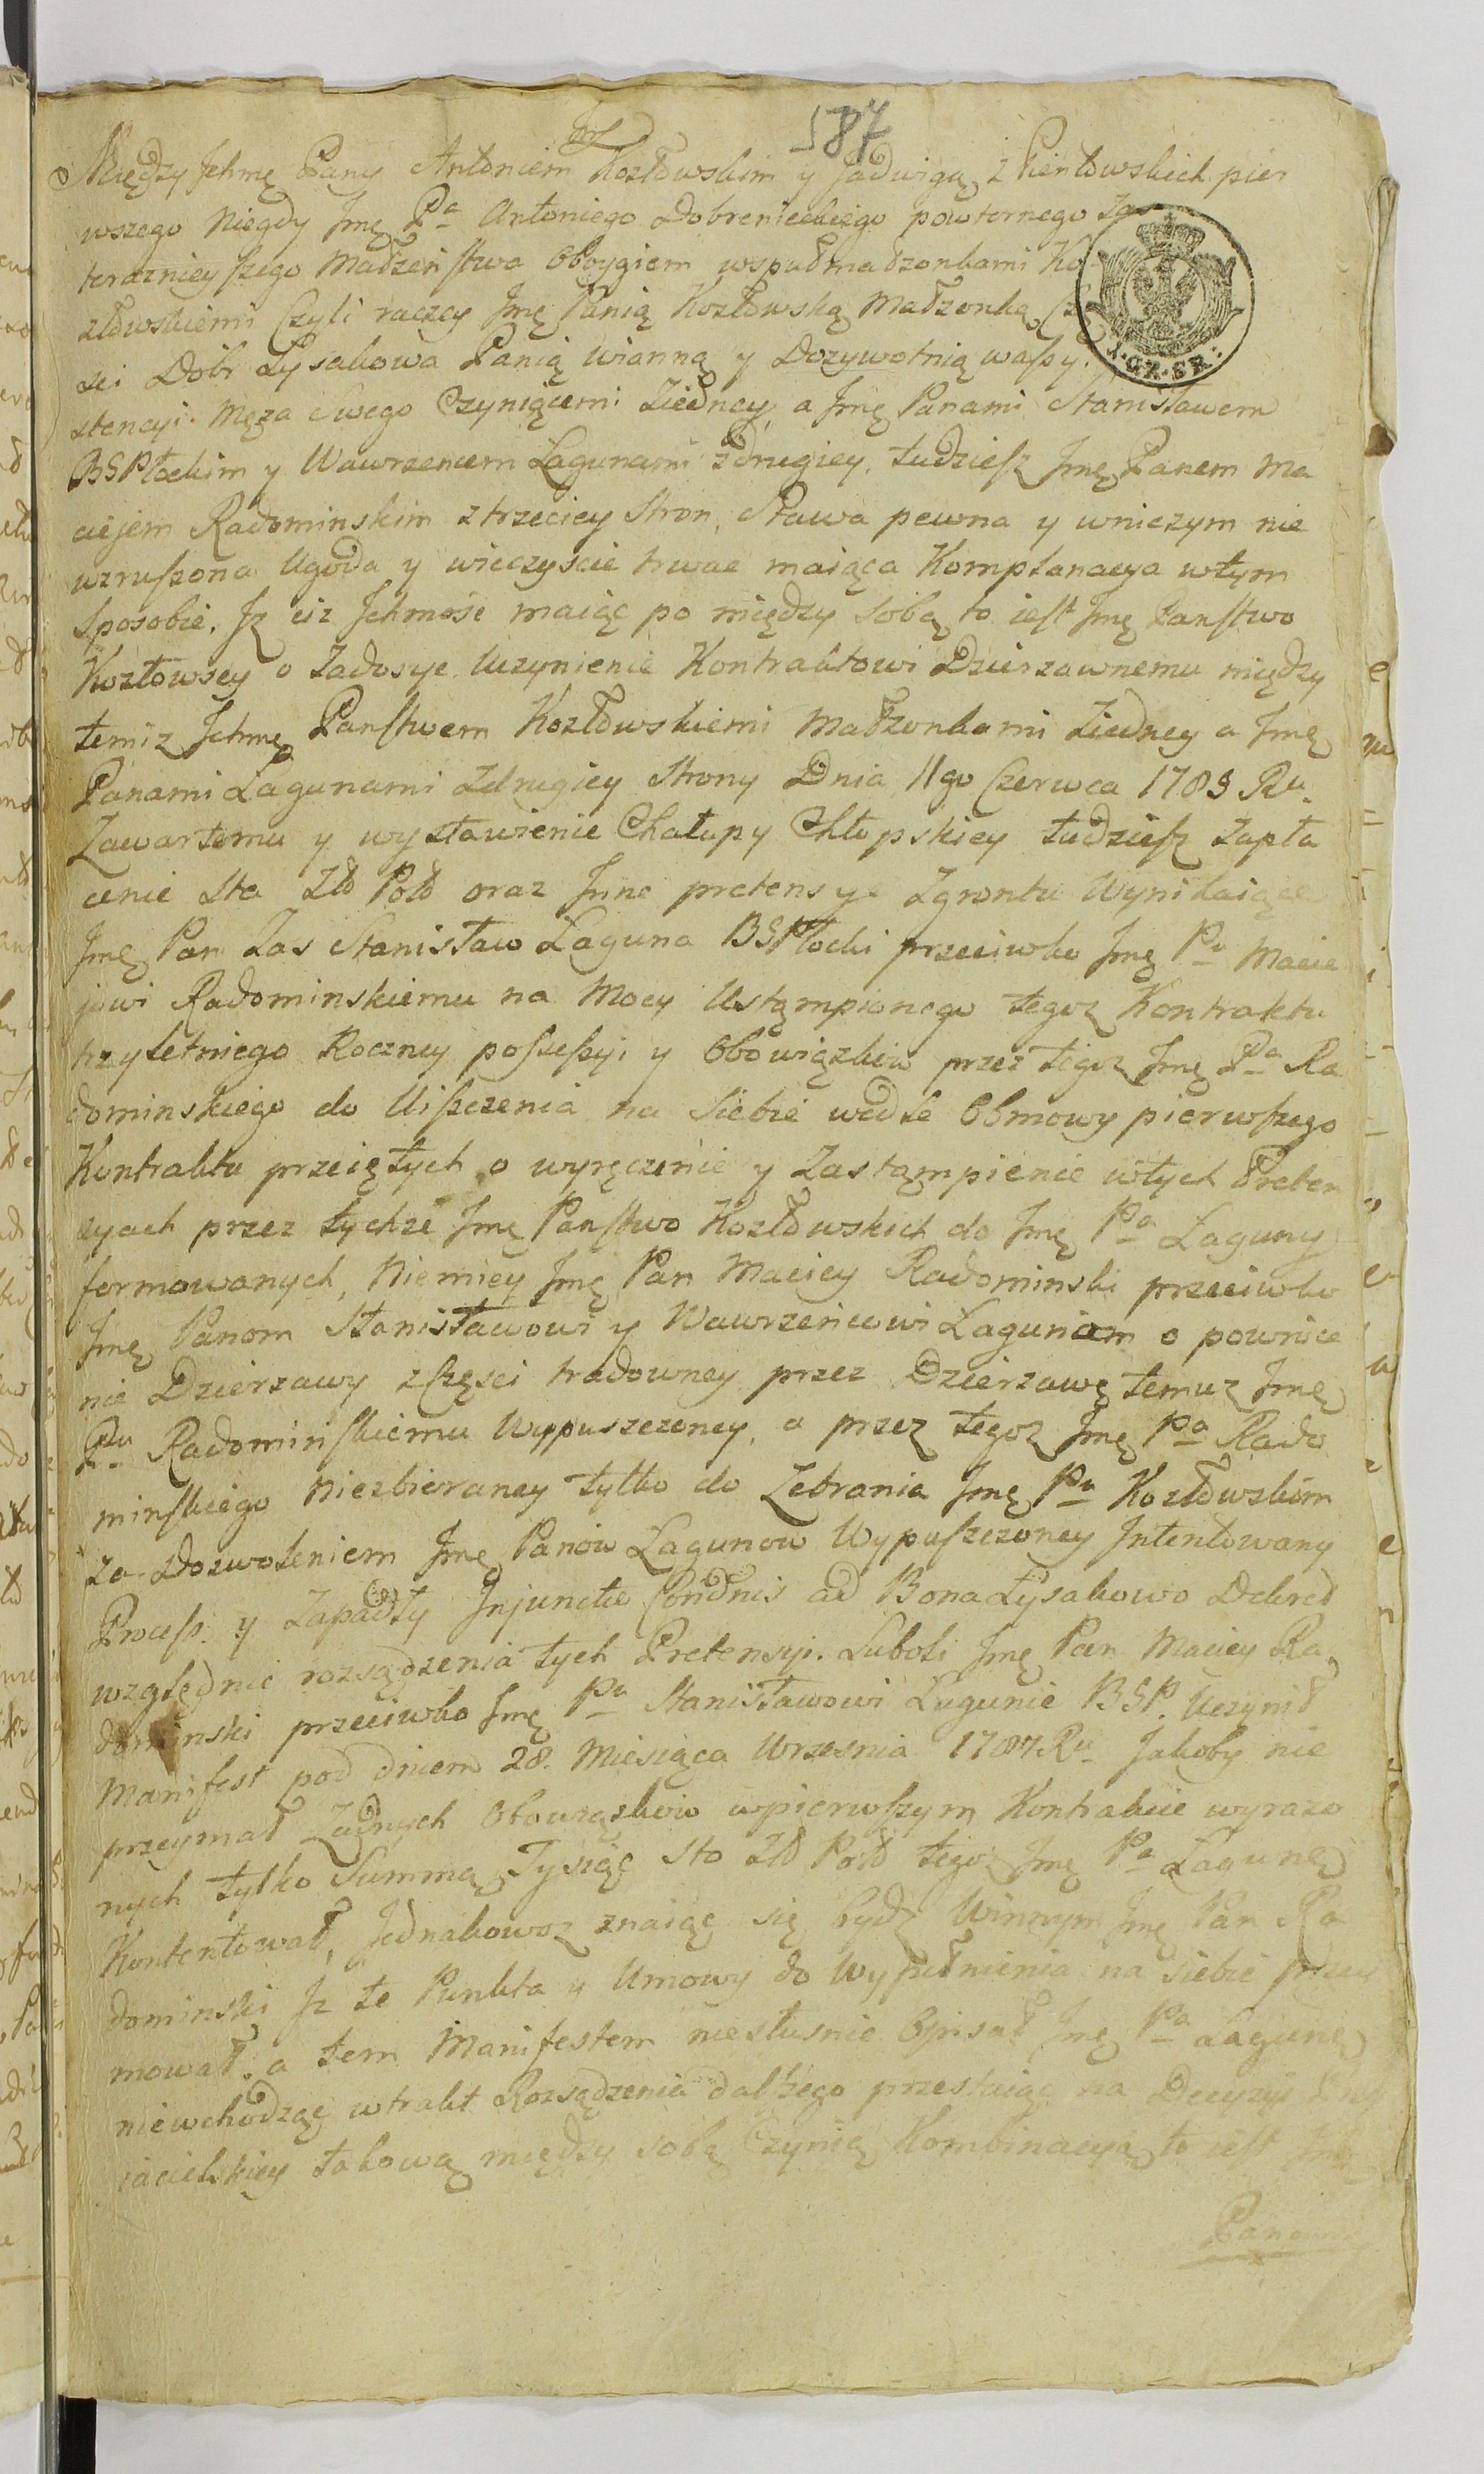 187
Między Jchmę Pany Antoniem Kozłowskim y Jadwigą z Pientowskich pier
wszego niegdy Jmę Pa Antoniego Dobrenieckiego powtornego zas
teraznieyszego Małżeństwa Oboygiem wspułmałżonkami Ko-
złowskiemi Czyli raczey Jmę Panią Kozłowską Małżonką, Czę
sci Dóbr Łysakowa Panią wianną y Dozywotnią wassy.
stencyi Męza swego Czyniącemi Ziedney, a Jmę Panami Stanisławem
BSPłockim y Wawrzencem Łagunami zdrugiey, tudziesz Jmę Panem Ma
ciejem Radominskim ztrzeciey Stron, Stawa pewna y wniczym nie
wzruszona Ugoda y wieczyscie trwac maiąca Komplanacya wtym
Sposobie, Jz ciz Jchmość maiąc po między sobą to iest Jmę Państwo
Kozłowscy o Zadosyc Uczynienie Kontraktowi Dzierzawnemu między
temiz Jchmę Państwem Kozłowskiemi Małżonkami Ziedney a Jmę
Panami Łagunami Zdrugiey Strony Dnia 11go Czerwca 1783 Ru.
Zawartemu y wystawienie Chałupy Chłopskiey tudziesz Zapła
cenie Sta Złł Poll oraz Jnne pretensye Zgrontu Wynikaiące
Jmę Pan Zas Stanisław Łaguna BSPłocki przeciwko Jmę Pu Macie
jowi Radominskiemu na Mocy Ustąmpionego tegoz Kontraktu
trzyletniego Roczney possessyi y Obowiązkow przez tegoz Jmę Pa Ra
dominskiego do Uiszczenia na Siebie wedle Obmowy pierwszego
Kontraktu przeiętych o wyręczenie y Zastąmpienie wtych Preten
syach przez tychze Jmę Państwo Kozłowskich do Jmę Pa Łaguny
formowanych, Niemniey Jmę Pan Maciey Radominski przeciwko
Jmę Panom Stanisławowi y Wawrzeńcowi Łagunom o powroce
nie Dzierzawy zCzęsci tradowney przez Dzierzawę temuz Jmę
Pu Radominskiemu Wypuszczoney, a przez tegoz Jmę Pa Rado
minskiego niezbieraney tylko do Zebrania Jmę Pu Kozłowskim
za dozwoleniem Jmę Panow Łagunow Wypuszczoney Jntentowany
Process y Zapadły Jnjuncte Condnis ad Bona Łysakowo Dekret
względnie rozsądzenia tych Pretensyi. Luboli Jmę Pan Maciey Ra,
dominski przeciwko Jmę Pu Stanisławowi Łagunie BSP. Uczynił
Manifest pod dniem 28. Miesiąca Wrzesnia 1787 Ru Jakoby nie
przeymał Zadnych Obowiązkow wpierwszym Kontrakcie wyrazo
nych tylko Summą Tysiąc Sto Złł Poll tegoz Jmę Pa Łagunę
Kontentował, Jednakowoz znaiąc się bydz Winnym Jmę Pan Ra
dominski Jz te Punkta y Umowy do Wypełnienia na siebie przey
mował, a tem Manifestem niesłusznie Opisał Jmę Pa Łagunę
niewchodząc wtrakt Rozsądzenia dalszego przestaiąc na Decyzyi Przy
iacielskiey takową między sobą Czynią Kombinacyą to iest Jmę
Panowie